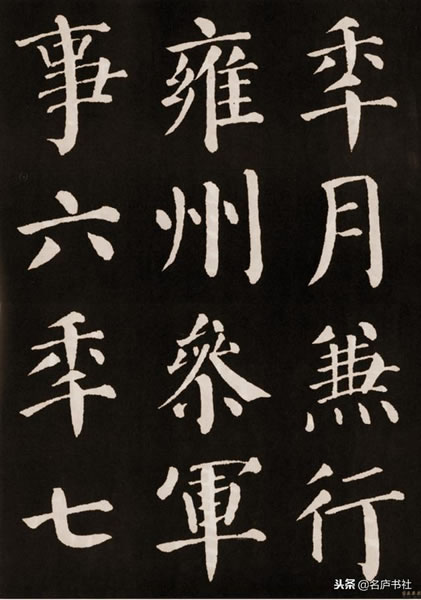 秊月兼行
雍州參軍
事六秊七
头条 @名庐书社